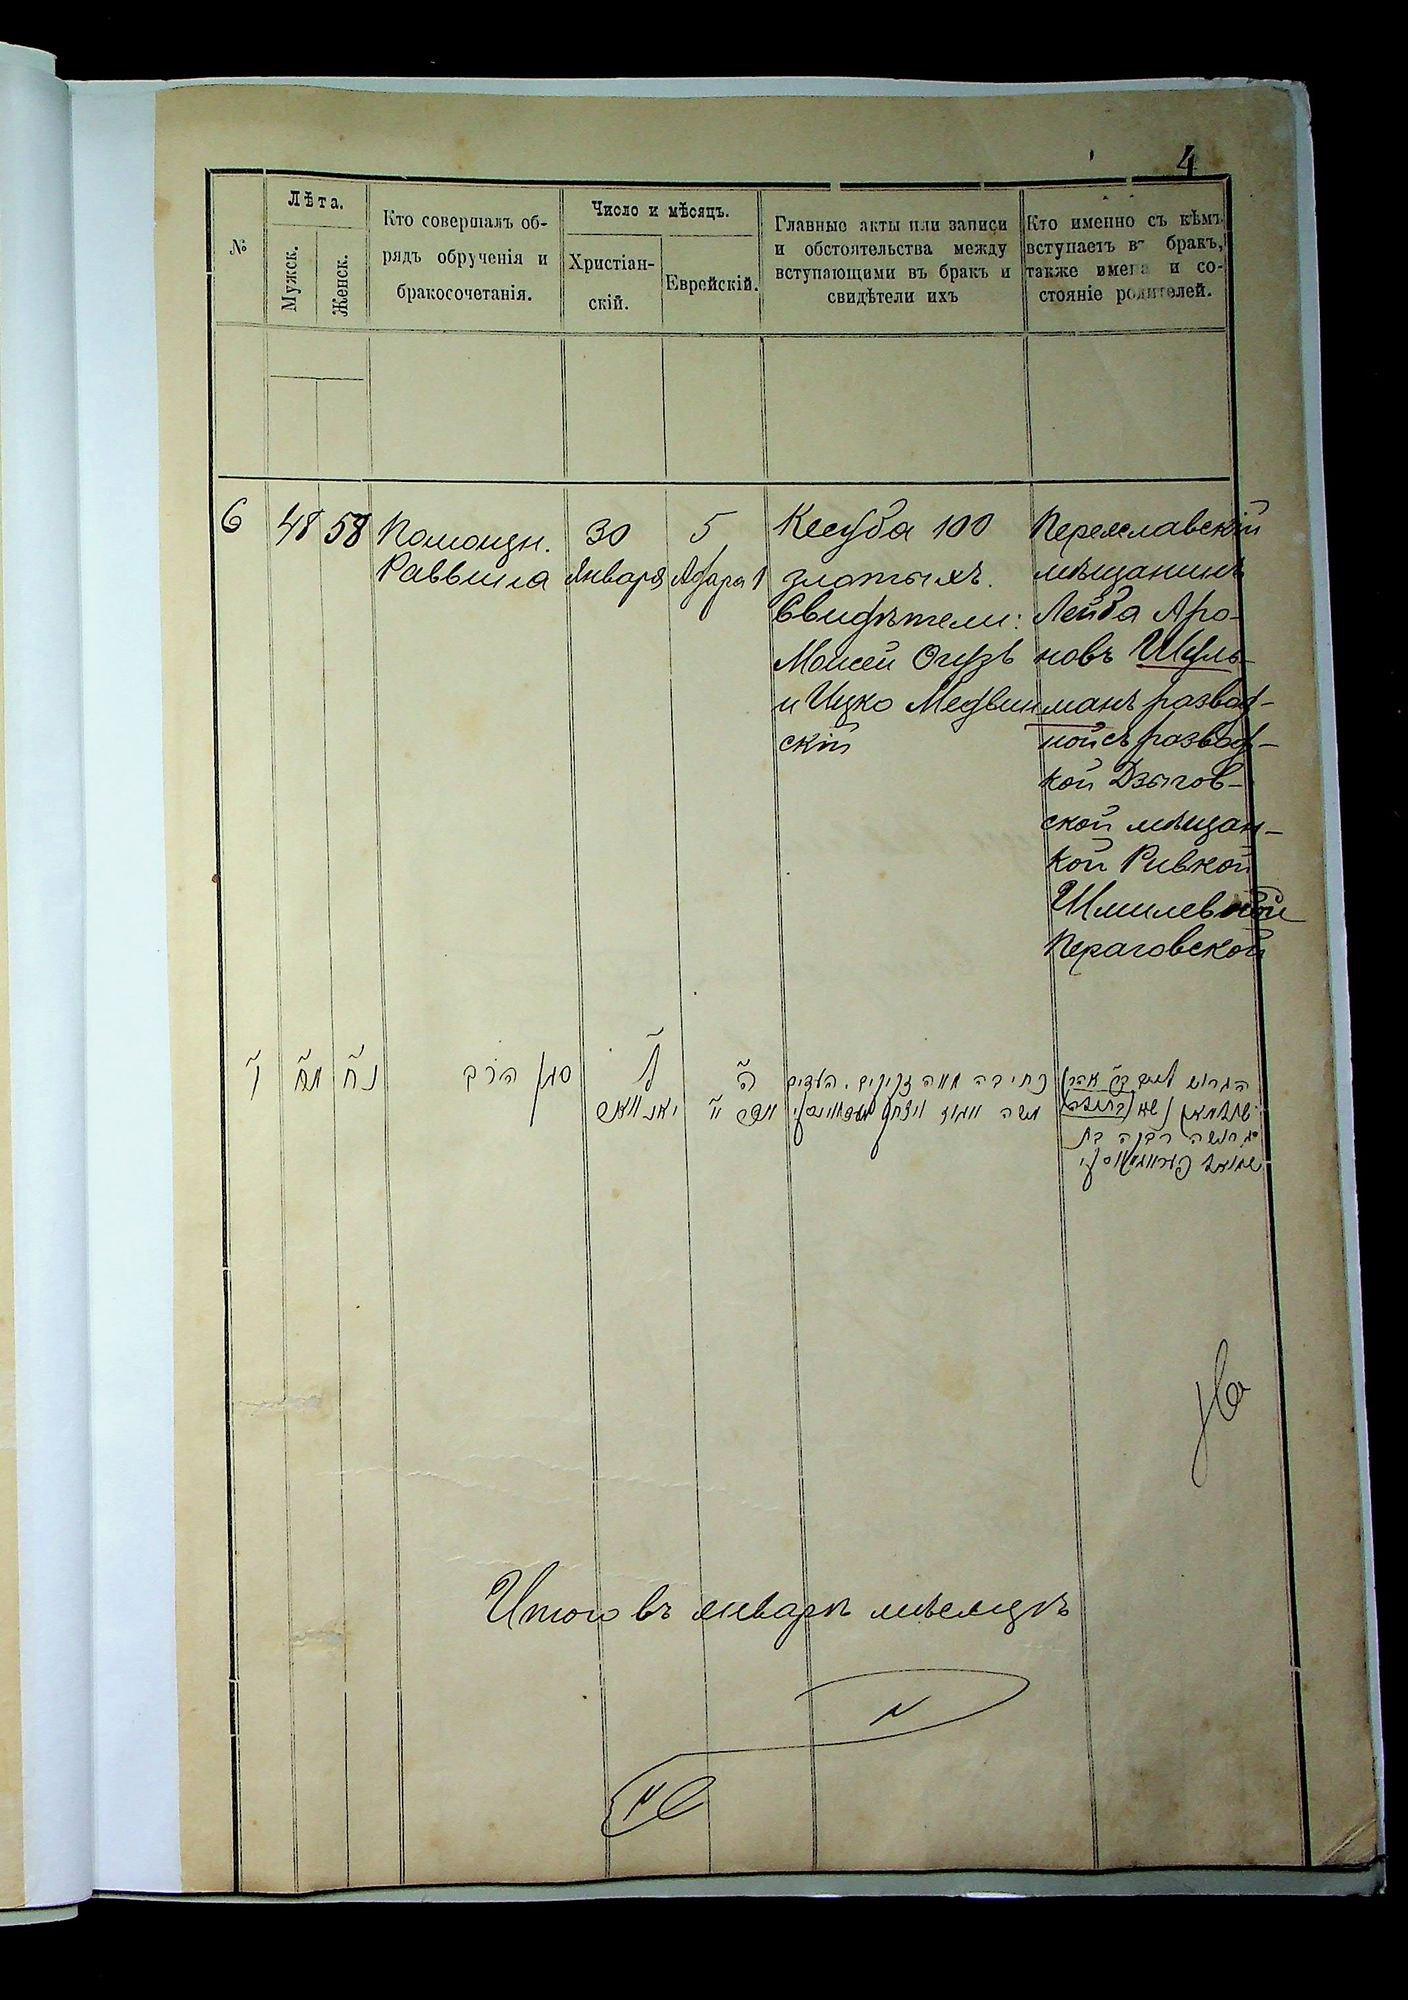 4
№
Лѣта.
Мужск.
Женск.
Кто совершалъ об-
рядъ обрученія и
бракосочетанія.
Число и мѣсяцъ.
Христіан-
скій.
Еврейскій.
Главные акты или записи
и обстоятельства между
вступающими въ бракъ и
свидѣтели ихъ
Кто именно съ кѣмъ
вступаетъ въ бракъ,
также имена и со-
стояніе родителей.
6
48
58
Помощн.
Раввина
30
Января
5
Адара 1
Кесуба 100
златыхъ.
Свидѣтели:
Моисей Огузъ
и Ицко Медвин
скій
Переяславскій
мѣщанинъ
Лейба Аро-
новъ Шуль-
манъ развод-
ной съ развод-
кой Дзыгов-
ской мѣщан-
кой Ривкой
Шмилевной
Пераговской
ו
מח
נח
סגן הרב
ל
יאנוואר
ה
אדר
כתובה מאה זקוקים. העדים
משה
הגרוש ליב בר אהרן
שולמאן נשא
גרושה רבקה בת
שמואל
Итого въ январѣ мѣсяцѣ